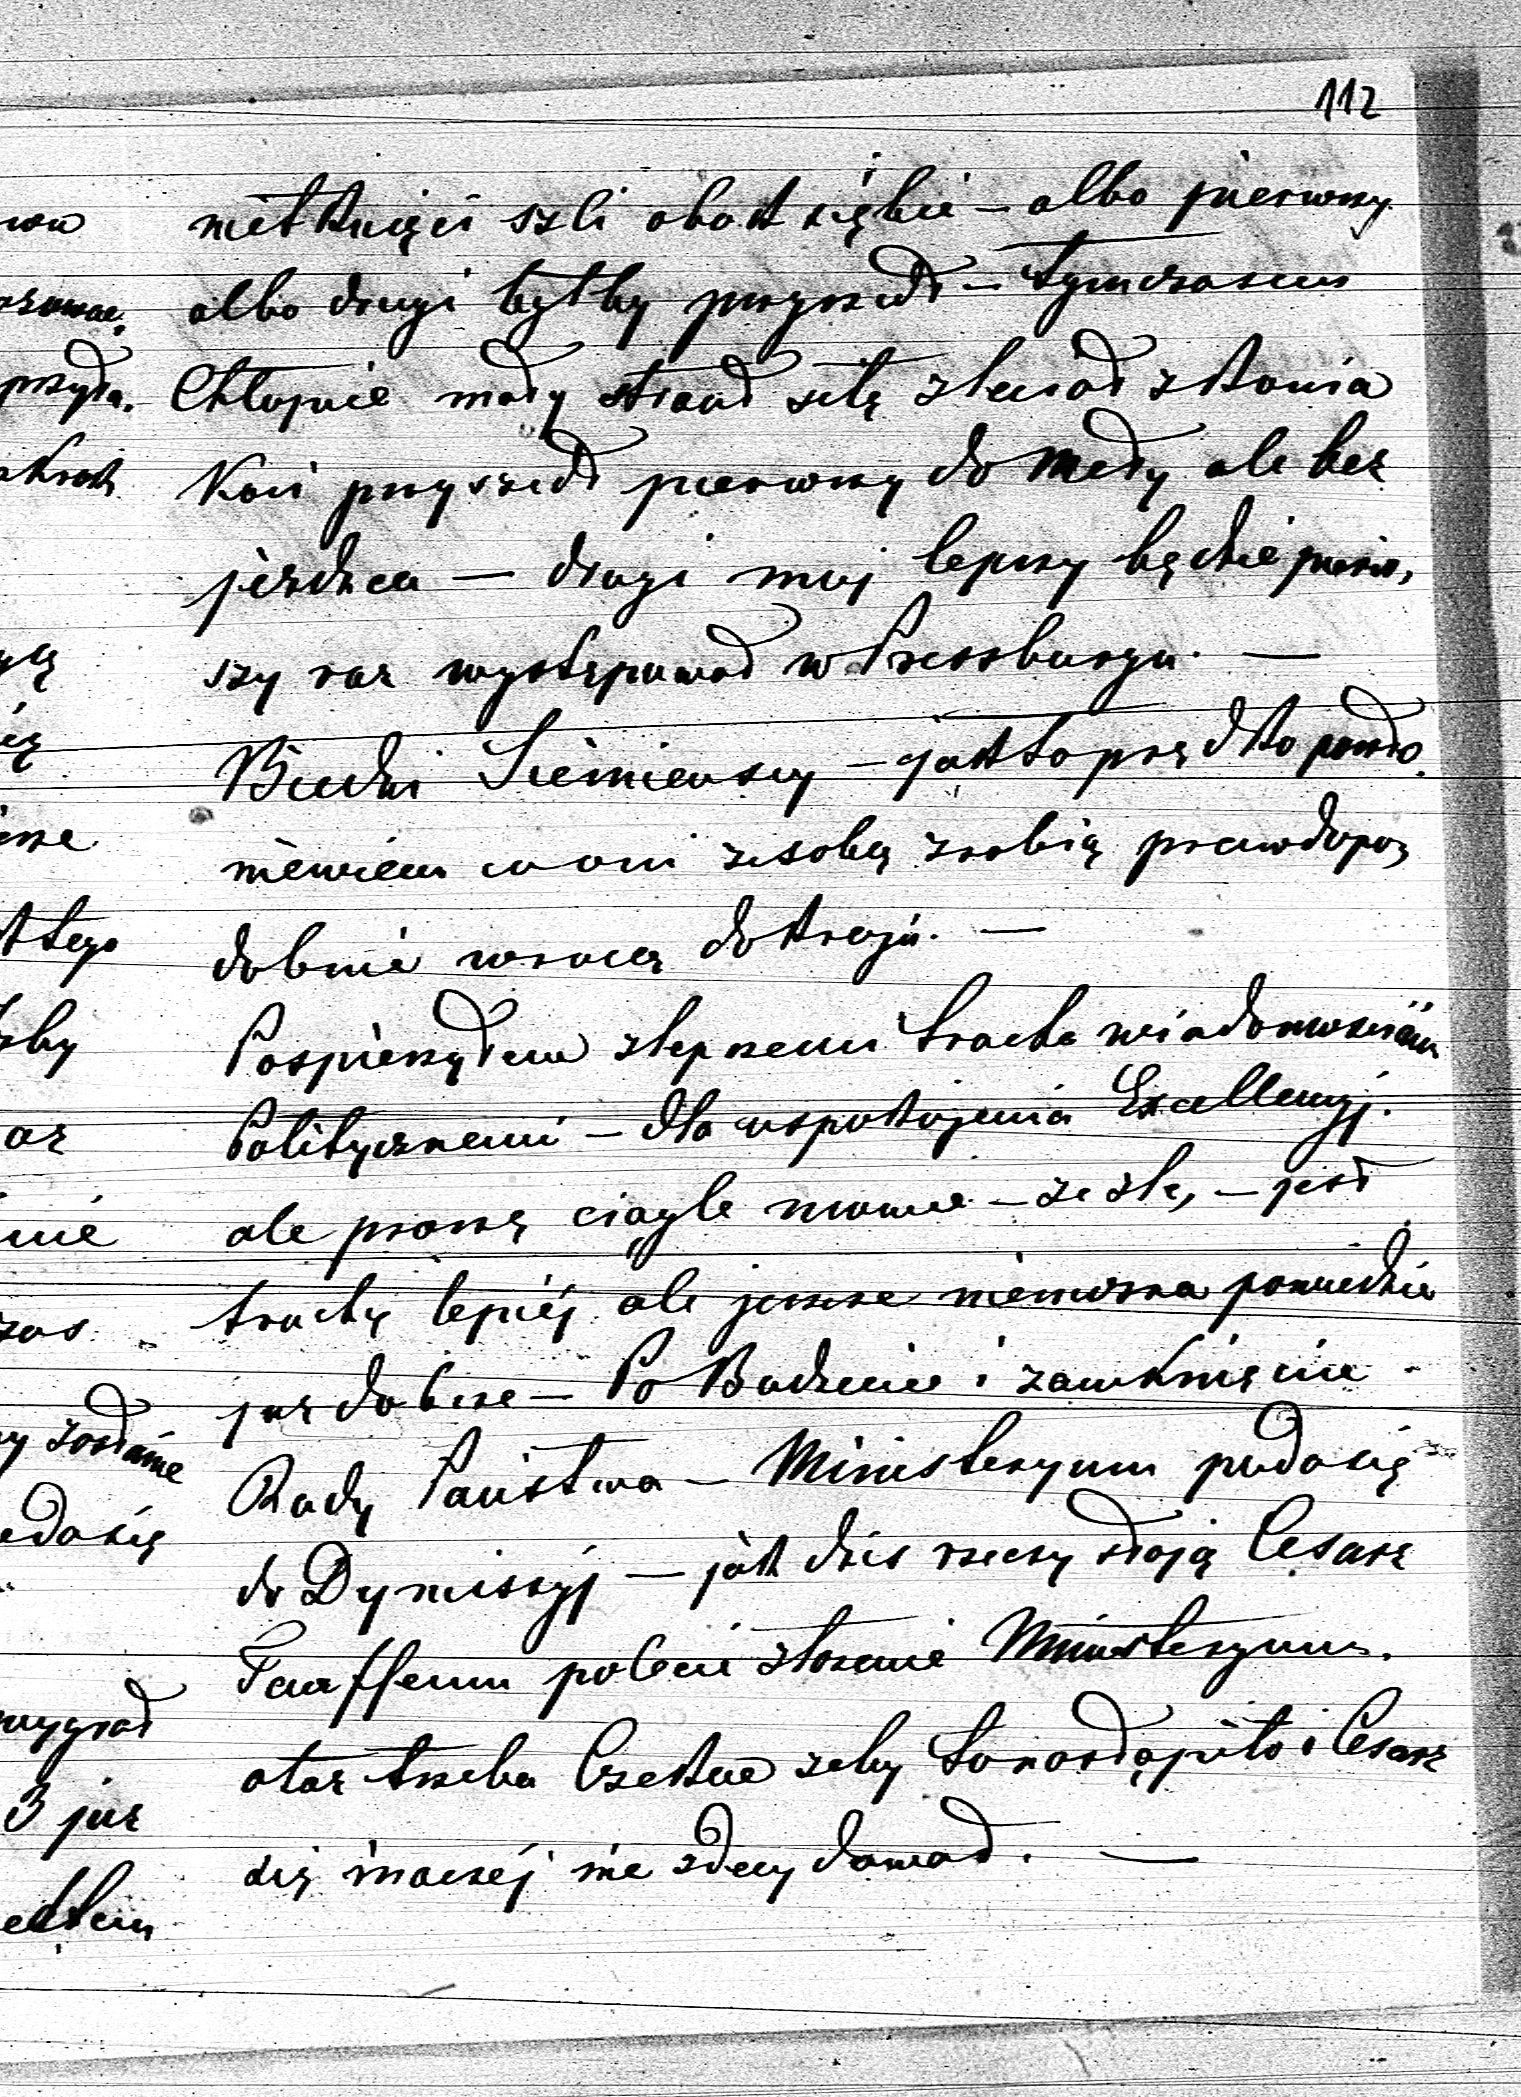 112
nietknięci szli obok siębie – albo pierwszy
albo drugi byłby przyszedł – tymczasem
Chłopiec mały stracił siłę zleciał z konia
Koń przyszedł pierwszy do mety ale bez
jeźdzca – drugi muj lepszy będzie pierw,
szy raz występował w Pressburgu. —
Biedni Siemieńscy – jak to prędko poszło
niewiem co oni ze sobą zrobią prawdopo,
dobnie wrocą do kraju. —
Pospieszyłem z lepszemi trochę wiadomościami
Politycznemi – dla uspokojenia Excellencyj.
ale proszę ciągle mowić – że źle, – jest
trochę lepiéj ale jeszcze niemożna powiedzić
już dobrze – Po Budżecie i zamknięciu
Rady Państwa – Ministeryum poda się
do Dymissyj – jak dziś rzeczy stoją Cesarz
Taaffemu poleci złożenie Ministeryum.
otoż trzeba Czekać żeby to nastąpiło i Cesarz
się inaczéj nie zdecydował. —